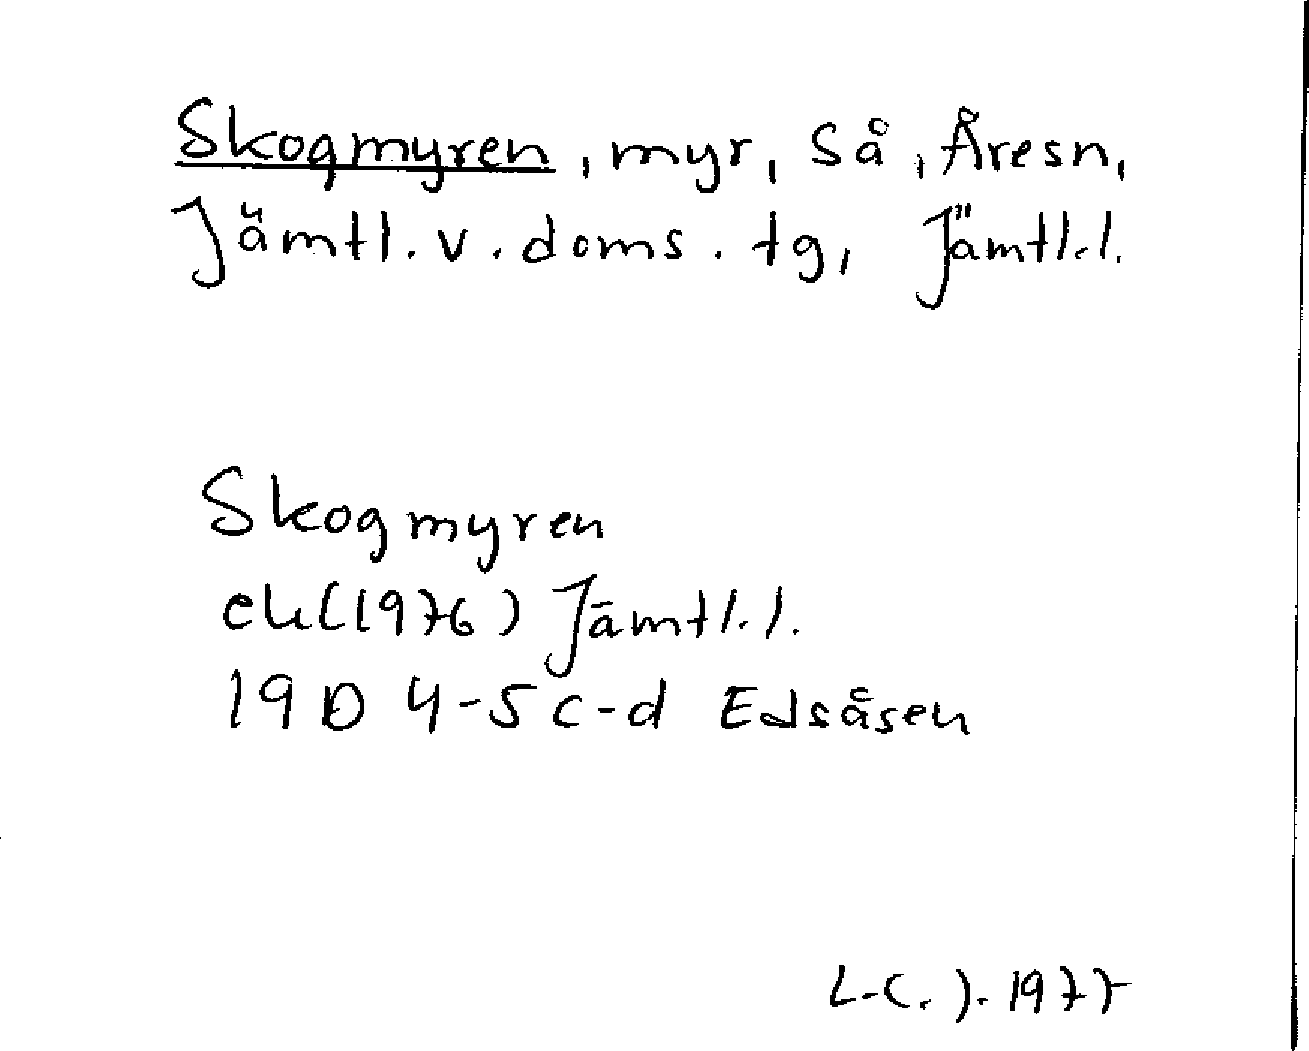 Skogmyren, myr, Så, Åresn,
Jämtl. v. doms. tg, Jämtl.l.
Skogmyren
ek(1976) Jämtl.l.
19D 4-5 c-d Edsåsen
L-C. J. 1977